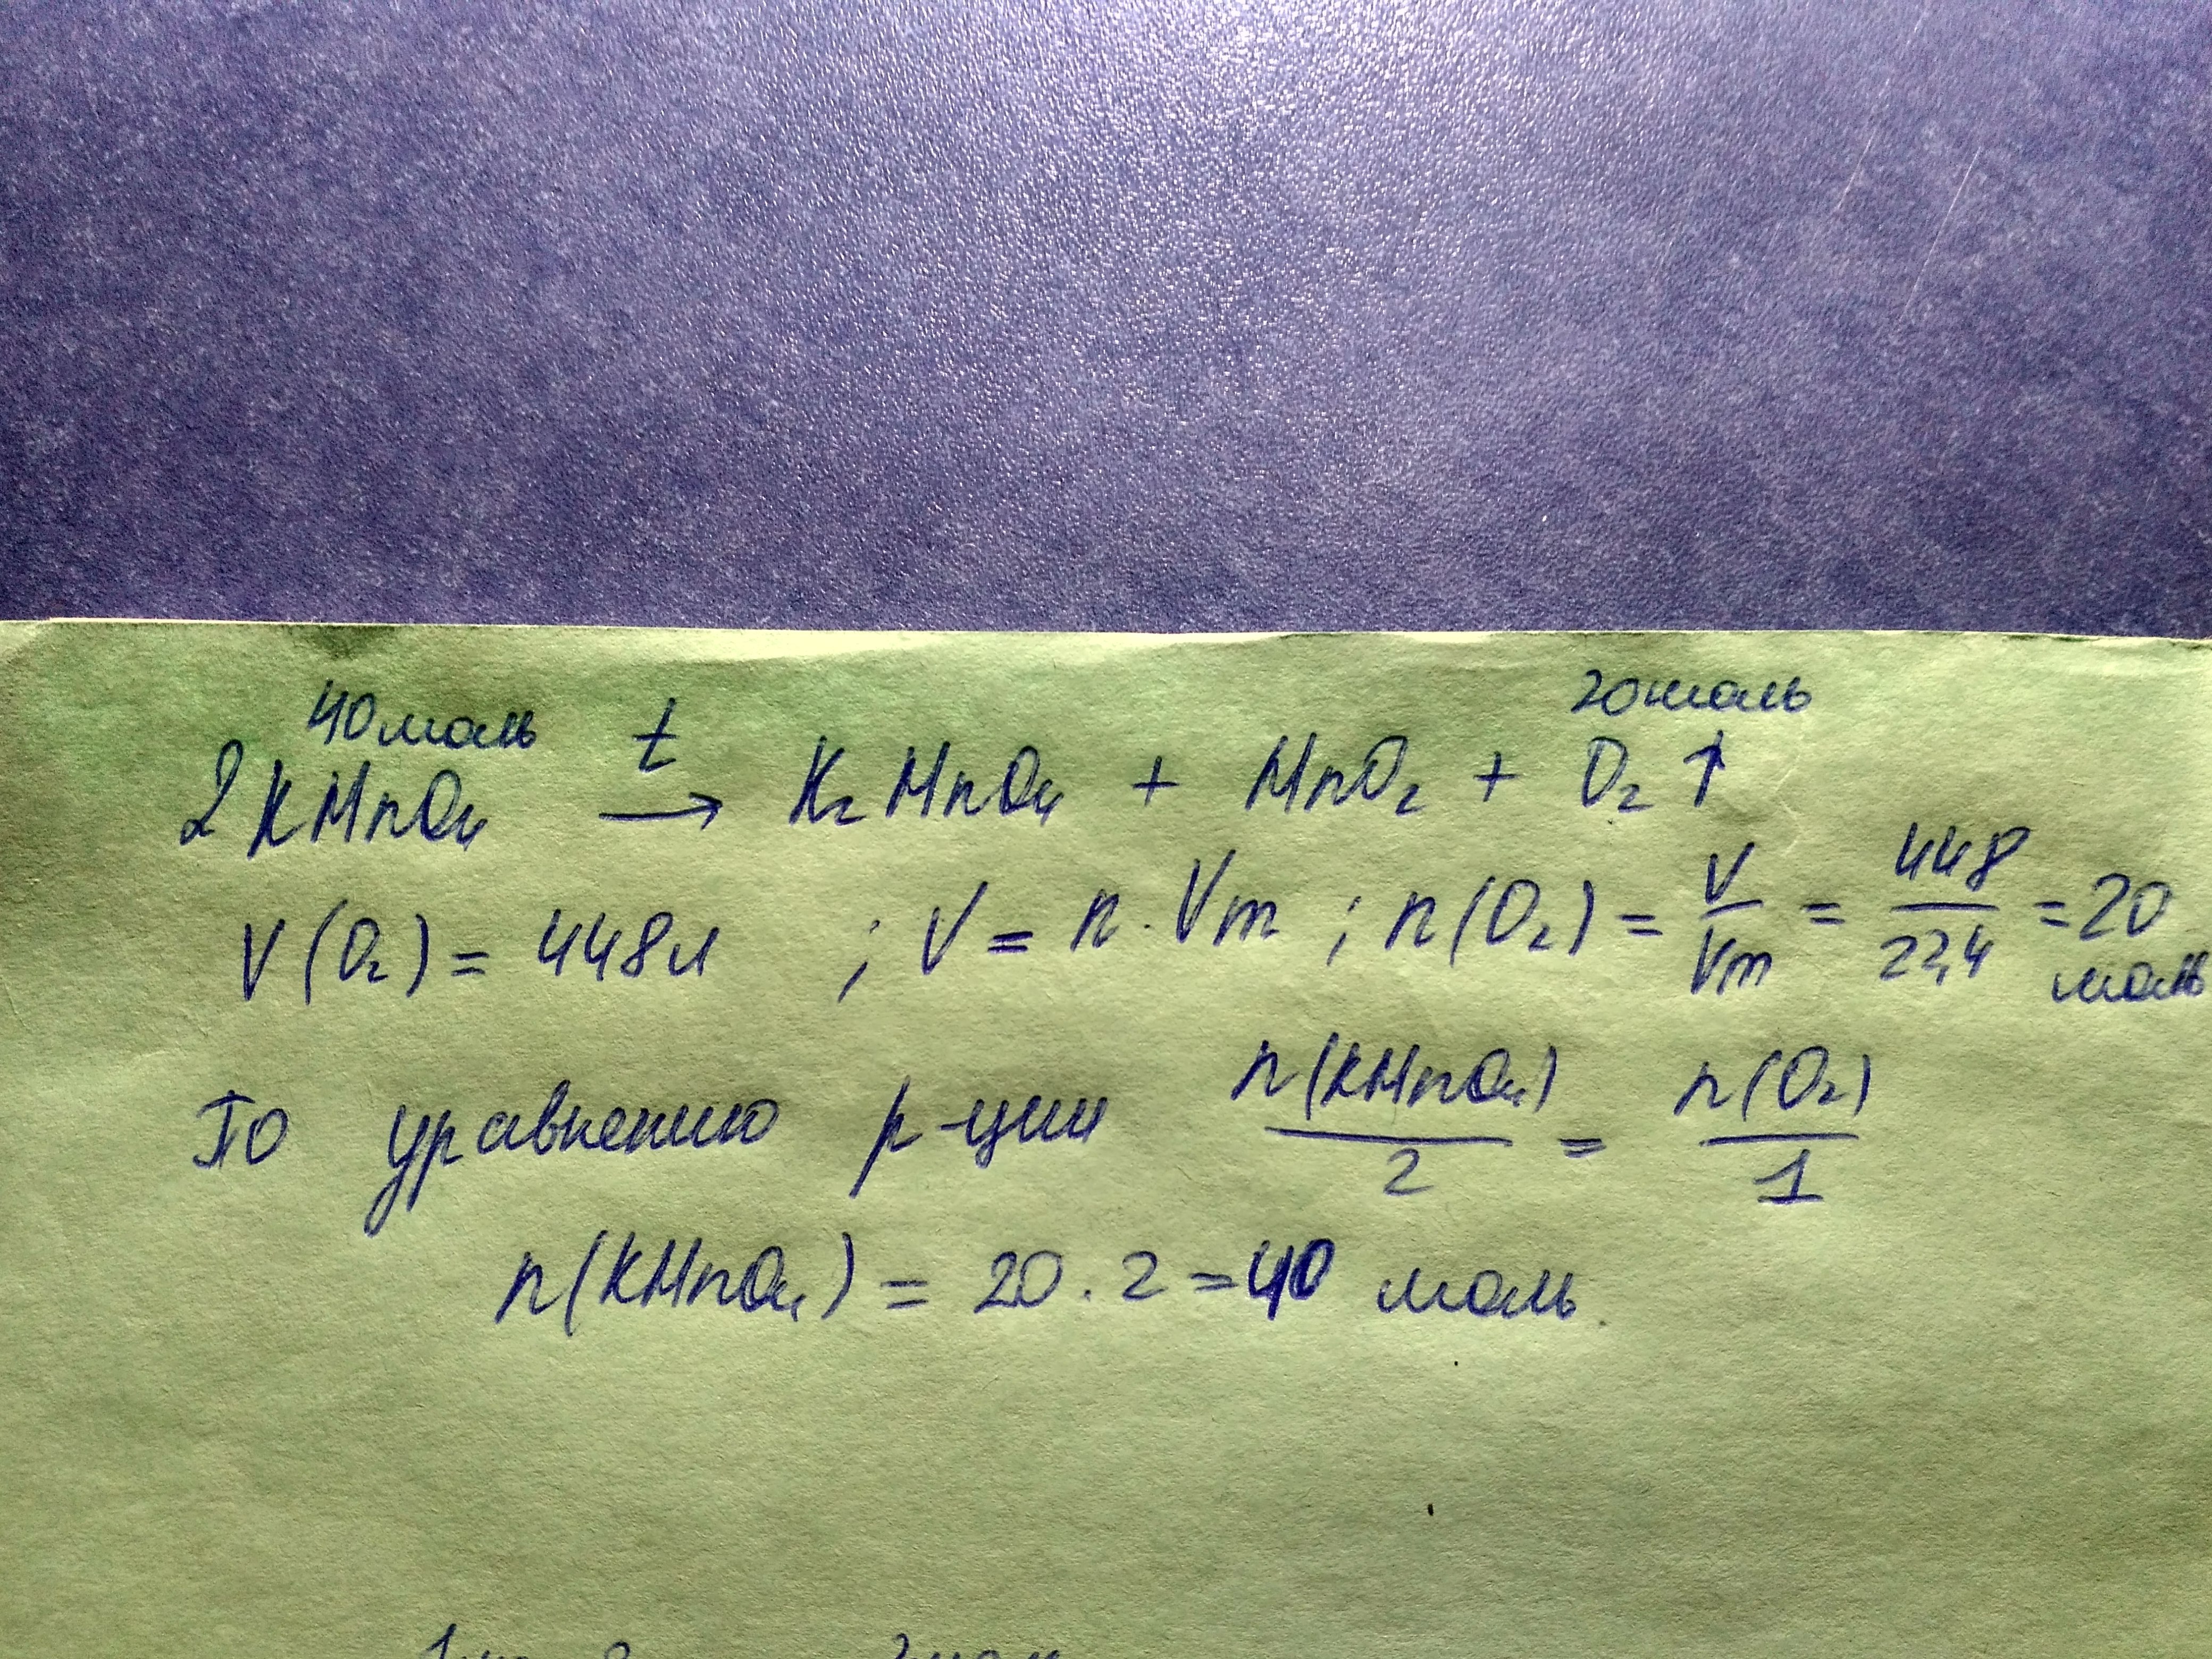 40 моль t 20 моль
2KMnO₄ → K₂MnO₄ + MnO₂ + O₂↑
V(O₂) = 448л ; V = n · Vm ; n(O₂) = V/Vm = 448/22,4 = 20 моль
По уравнению р-ции n(KMnO₄)/2 = n(O₂)/1
n(KMnO₄) = 20 · 2 = 40 моль